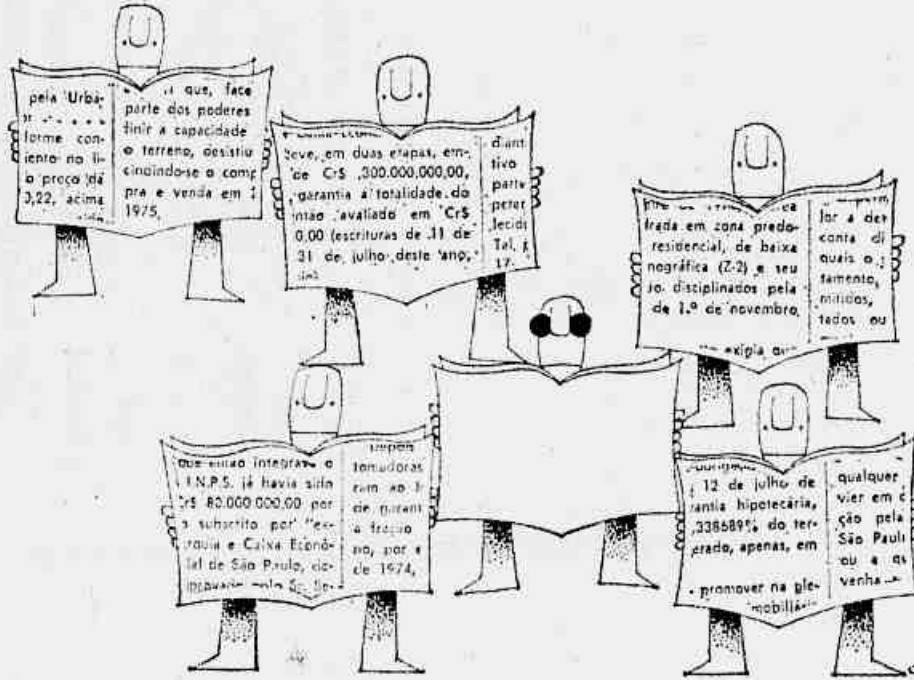 pela Urba-
forme con-
iento no li-
o preço da
0,22, acima
que, face
parte dos poderes
finir a capacidade
o terreno, desistiu
cindindo-se o comp
pra e venda em
1975,
leve, em duas etapas, em-
de Cr$ .300.000.000,00,
garantia a totalidade do
intão avaliado em Cr$
0,00 (escrituras de 11 de
31 de julho deste ano,
diant
tivo
parte
peter
lecid
Tal, p
17.
frada em zona predo-
residencial, de baixa
nográfica (Z-2) e seu
jo. disciplinados pela
de 1.º de novembro,
exigia que
lor a der
conta di
quais o
tamento,
mitidos,
tados ou
que então integrava o
I.N.P.S. já havia sido
r$ 80.000.000,00 por
o subscrito por "es-
rquia e Caixa Econô-
tal de São Paulo, de-
provado pelo Sr. Se-
Depois
tomadoras
ram ao I-
de garant
a fração
no, por e
de 1974,
12 de julho de
rantia hipotecária,
,338689% do ter-
erado, apenas, em
promover na gle-
mobiliári
qualquer
vier em c
ção pela
São Paulo
ou a qu
venha